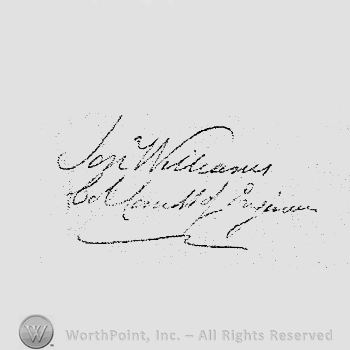 Jonⁿ Williams
Col Comdt of Engineers
WorthPoint, Inc. – All Rights Reserved